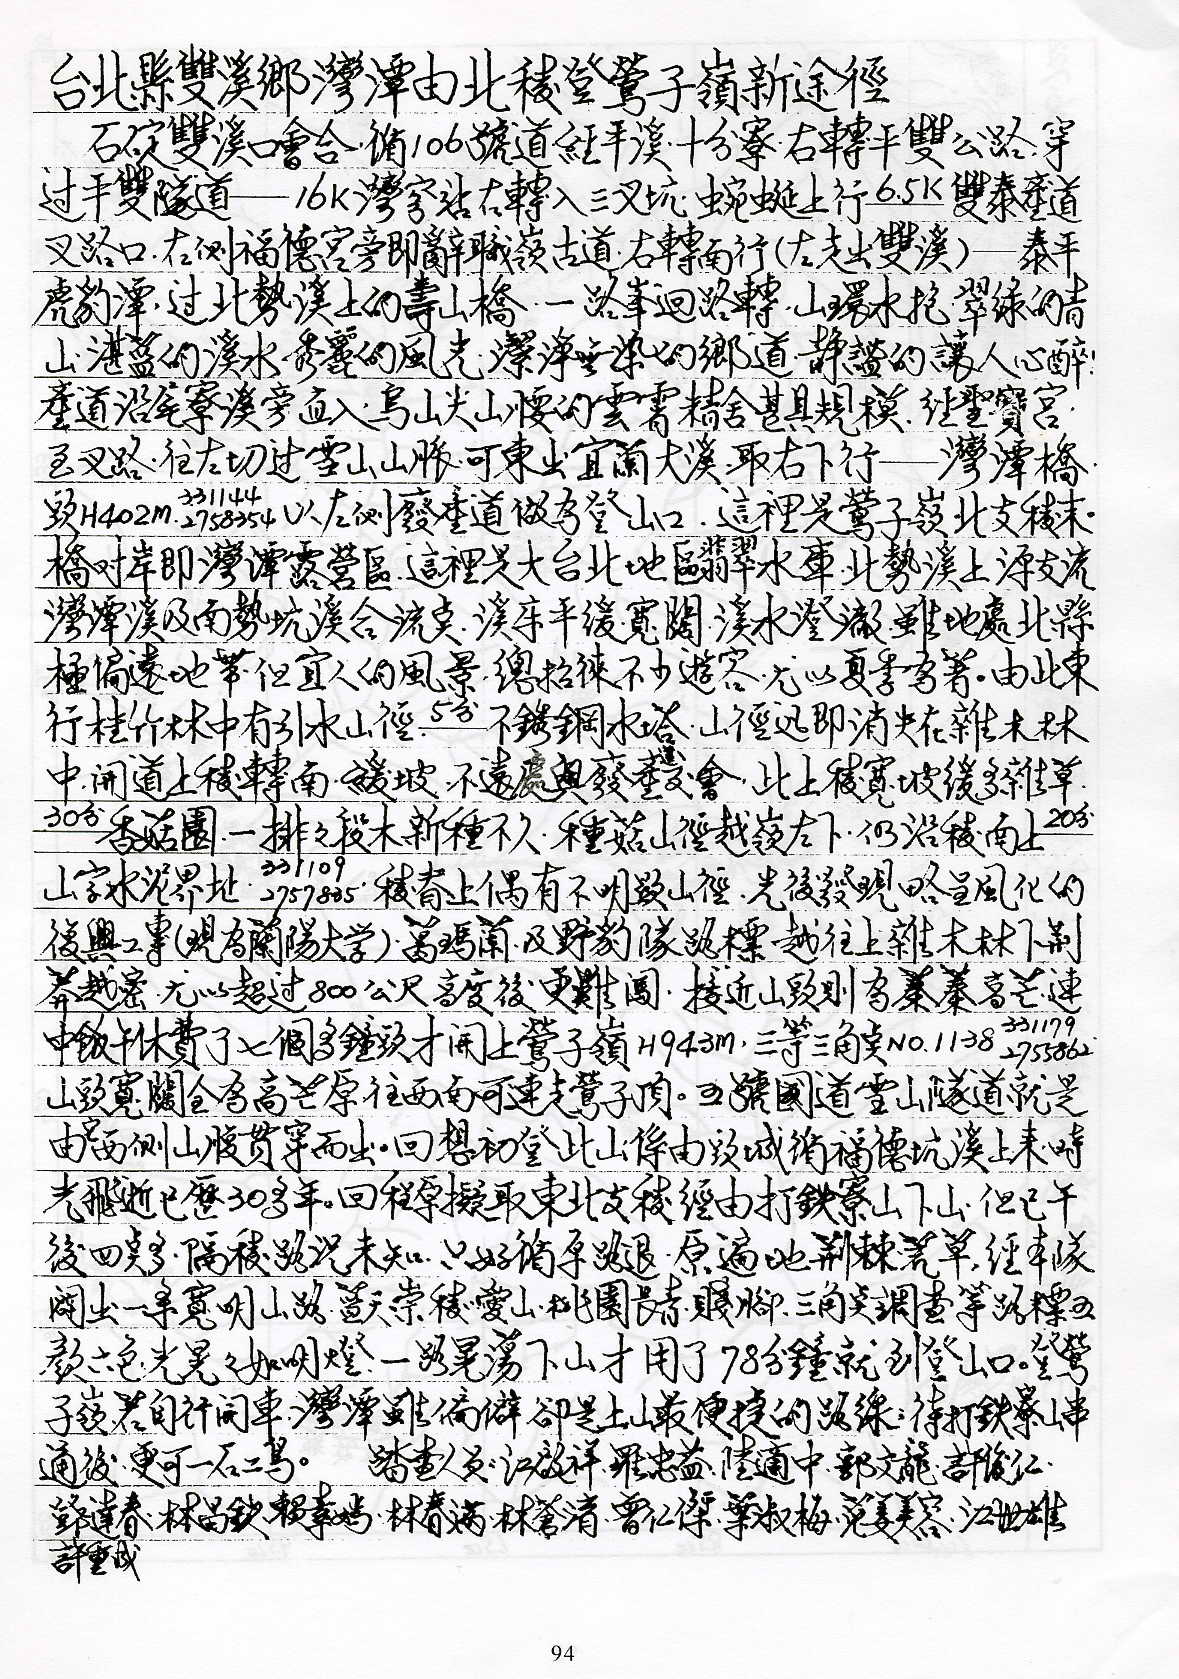 台北縣雙溪鄉灣潭由北稜登鶯子嶺新途徑
石碇雙溪口會合循106號道經平溪十分寮右轉平雙公路穿
过平雙隧道——16K灣字站右轉入三叉坑蜿蜒上行6.5K雙泰產道
叉路口左側福德宮旁即辭職嶺古道右轉南行(左走出雙溪)——泰平
虎豹潭过北勢溪上的壽山橋一路峯迴路轉山環水抱翠綠的青
山湛藍的溪水秀麗的風光潔淨無染的鄉道靜謐的讓人心醉!
產道沿後寮溪旁而入烏山尖山腰的雲霄精舍甚具規模經聖寶宮
至叉路往左切过雪山山脈可東出宜蘭大溪取右下行——灣潭橋
頭H402M 331144 2758354以左側廢產道做為登山口這裡是鶯子嶺北支稜末。
橋对岸即灣潭露營區這裡是大台北地區翡翠水庫北勢溪上源支流
灣潭溪及南勢坑溪合流点溪床平緩寬闊溪水澄澈雖地處北縣
極偏遠地帶但宜人的風景總招徠不少遊客尤以夏季為著。由此東
行桂竹林中有引水山徑5分——不銹鋼水塔山徑迅即消失在雜木林
中開道上稜轉南緩坡不遠處與廢產道交會此上稜寬坡緩多雜草
30分香菇園一排々段木新種不久種菇山徑越嶺左下仍沿稜南上20分
山字水泥界址331109 2757835稜脊上偶有不明顯山徑先後發現略呈風化的
復興工專(現為蘭陽大学)葛瑪蘭及野豹隊路標越往上雜木林下荆
莽越密尤以超过800公尺高度後更難闖接近山頭則為蓁蓁高芒連
中飯午休費了七個多鐘頭才開上鶯子嶺H943M三等三角点NO.1138 331179 2755862
山頭寬闊全為高芒原往西南可連走鶯子頂。五號國道雪山隧道就是
由它西側山腹貫穿而出。回想初登此山係由頭城循福德坑溪上来時
光飛逝已歷30多年。回程原擬取東北支稜經由打鉄寮山下山但已午
後四点多隔稜路況未知只好循原路退原遍地荆棘荒草經本隊
開出一条寬明山路藍天崇稜愛山桃園長青賤腳三角点調查等路標五
顏六色光晃々如明燈一路晃蕩下山才用了78分鐘就到登山口。登鶯
子嶺若自行開車灣潭雖偏僻卻是上山最便捷的路線;待打鉄寮山串
通後更可一石二鳥。踏查人員:江啟祥羅忠益陸適中郭文龍許俊仁
鄧達春林昌欽賴幸媽林春滿林蒼清曾仁傑葉淑梅范美容江世雄
許重成
94